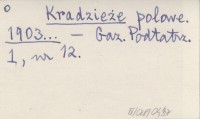 Kradzieże polowe.
1903... — Gaz. Podtatrz.
1, nr 12.